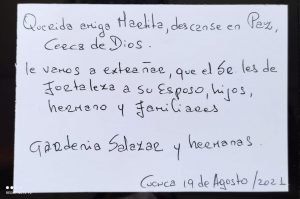 Querida amiga Martita, descanse en Paz,
Cerca de Dios.
le vamos a extrañar, que el Sr les de
Fortaleza a su Esposo, hijos,
hermano y Familiares
Gardenia Salazar y hermanas.
Cuenca 19 de Agosto/2021